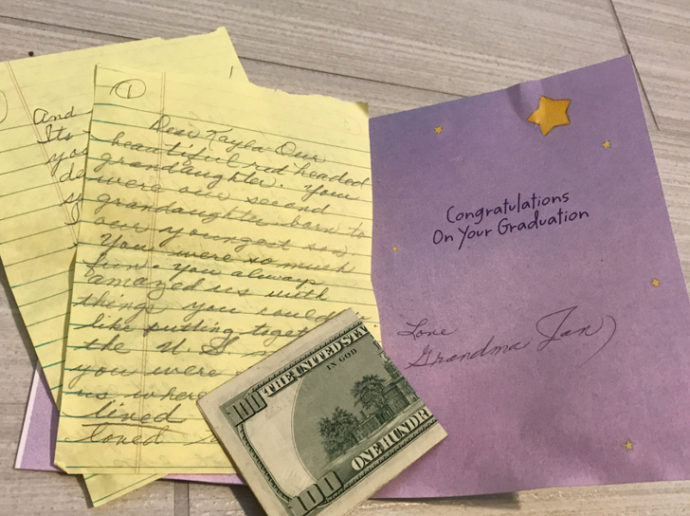 And
Its
you
1
Dear Kayla- Our
beautiful red headed
grandaughter. You
were our second
grandaughter born to
our youngest son,
You were so much
fun. You always
amazed us with
things you could
like putting toget
the U.S.
you were
us where
lived
loved
Congratulations
On Your Graduation
Love
Grandma Jan
THE UNITED STA
IN GOD
100
100
ONE HUNDR